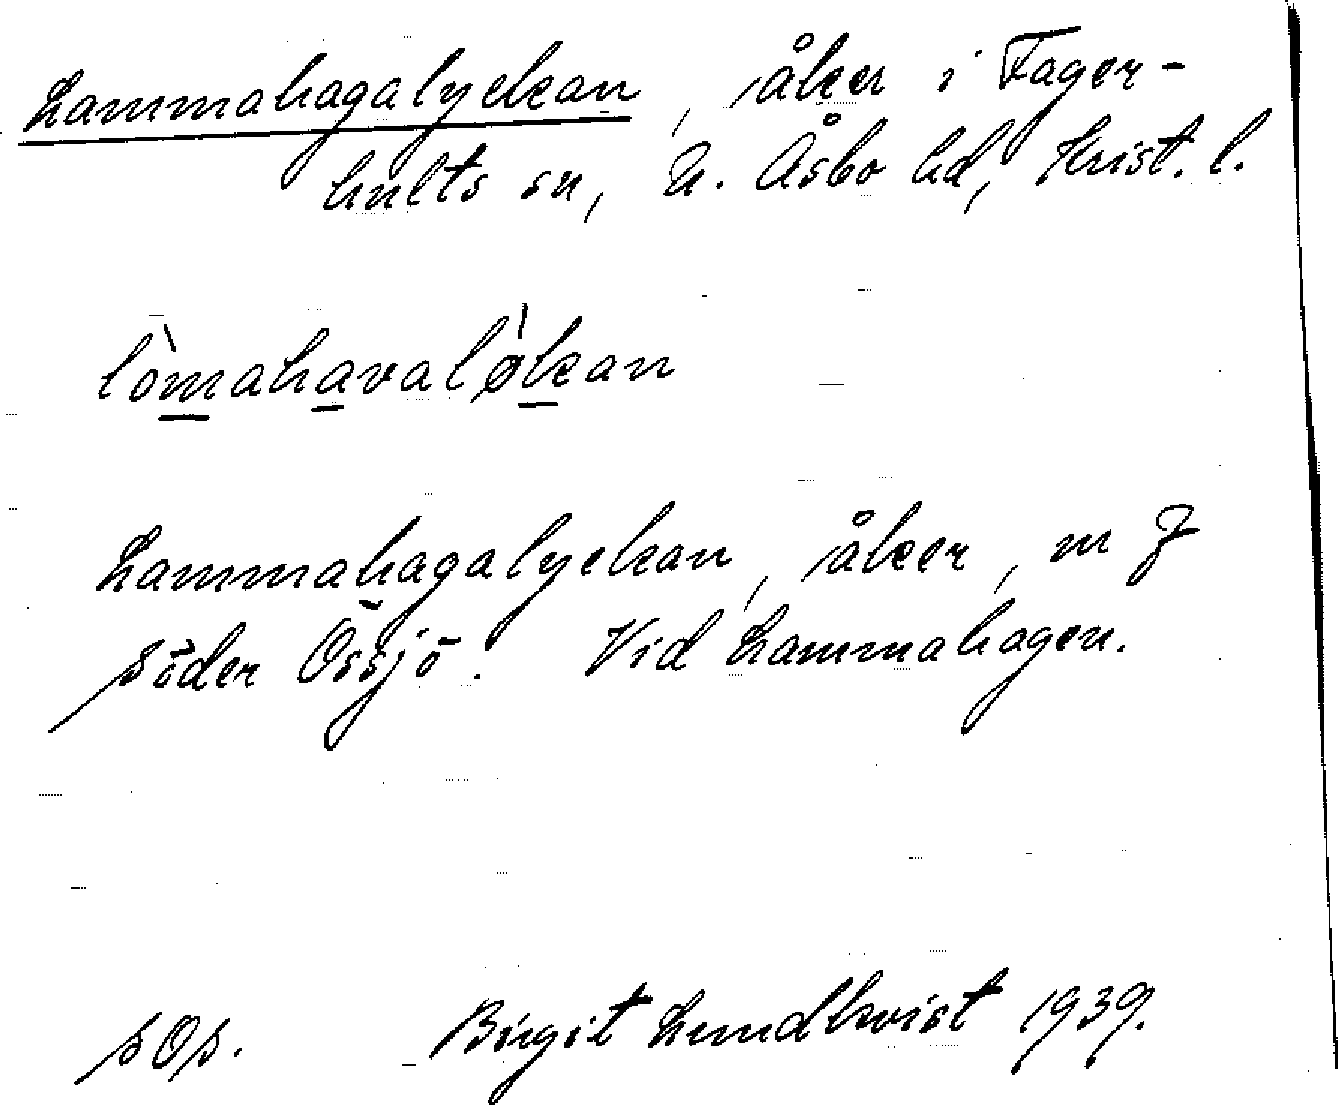 Lammahagalyckan, åker i Fager-
hults sn, N. Åsbo hd, Krist. l.
lòmahavalø̀kan
Lammahagalyckan, åker, m J
söder Össjö. Vid Lammahagen.
sOs. Birgit Lundkvist 1939.